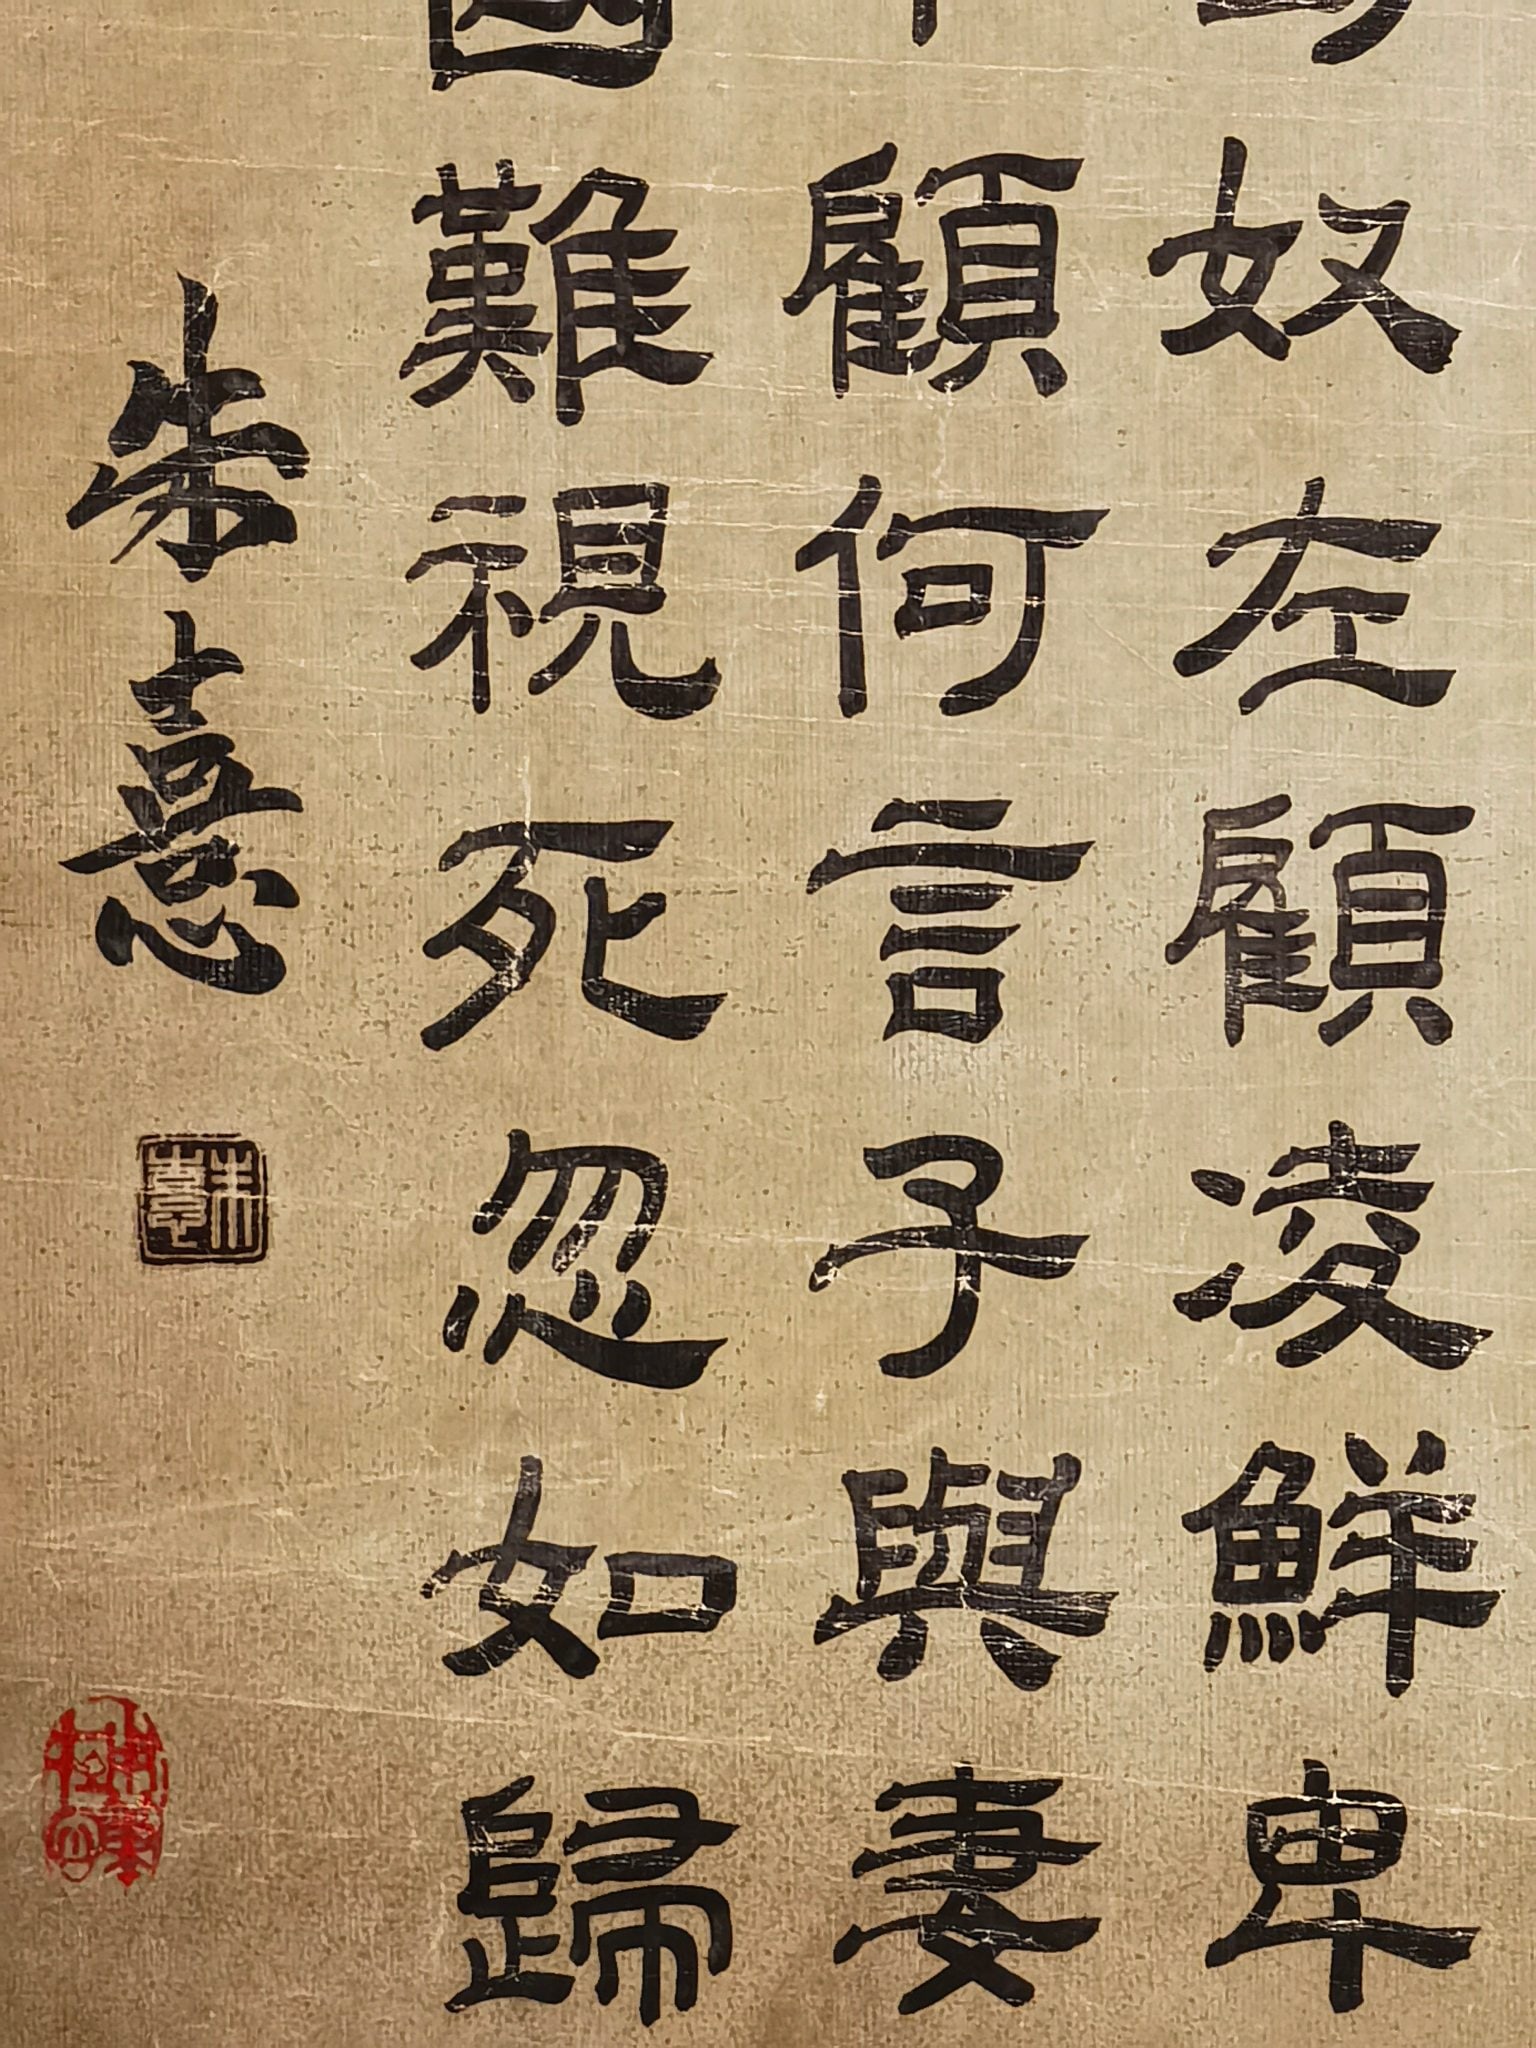 奴左顧凌鮮卑
顧何言子與妻
國難視死忽如歸
朱憙
朱憙